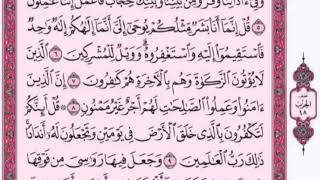 وَفِىٓ ءَاذَانِنَا وَقْرٌ وَمِنۢ بَيْنِنَا وَبَيْنِكَ حِجَابٌ فَٱعْمَلْ إِنَّنَا عَٰمِلُونَ
٥ قُلْ إِنَّمَآ أَنَا۠ بَشَرٌ مِّثْلُكُمْ يُوحَىٰٓ إِلَىَّ أَنَّمَآ إِلَٰهُكُمْ إِلَٰهٌ وَٰحِدٌ
فَٱسْتَقِيمُوٓا۟ إِلَيْهِ وَٱسْتَغْفِرُوهُ ۗ وَوَيْلٌ لِّلْمُشْرِكِينَ ٦ ٱلَّذِينَ
لَا يُؤْتُونَ ٱلزَّكَوٰةَ وَهُم بِٱلْءَاخِرَةِ هُمْ كَٰفِرُونَ ٧ إِنَّ ٱلَّذِينَ
ءَامَنُوا۟ وَعَمِلُوا۟ ٱلصَّٰلِحَٰتِ لَهُمْ أَجْرٌ غَيْرُ مَمْنُونٍ ٨ ۞ قُلْ أَئِنَّكُمْ
لَتَكْفُرُونَ بِٱلَّذِى خَلَقَ ٱلْأَرْضَ فِى يَوْمَيْنِ وَتَجْعَلُونَ لَهُۥٓ أَندَادًا
ذَٰلِكَ رَبُّ ٱلْعَٰلَمِينَ ٩ وَجَعَلَ فِيهَا رَوَٰسِىَ مِن فَوْقِهَا